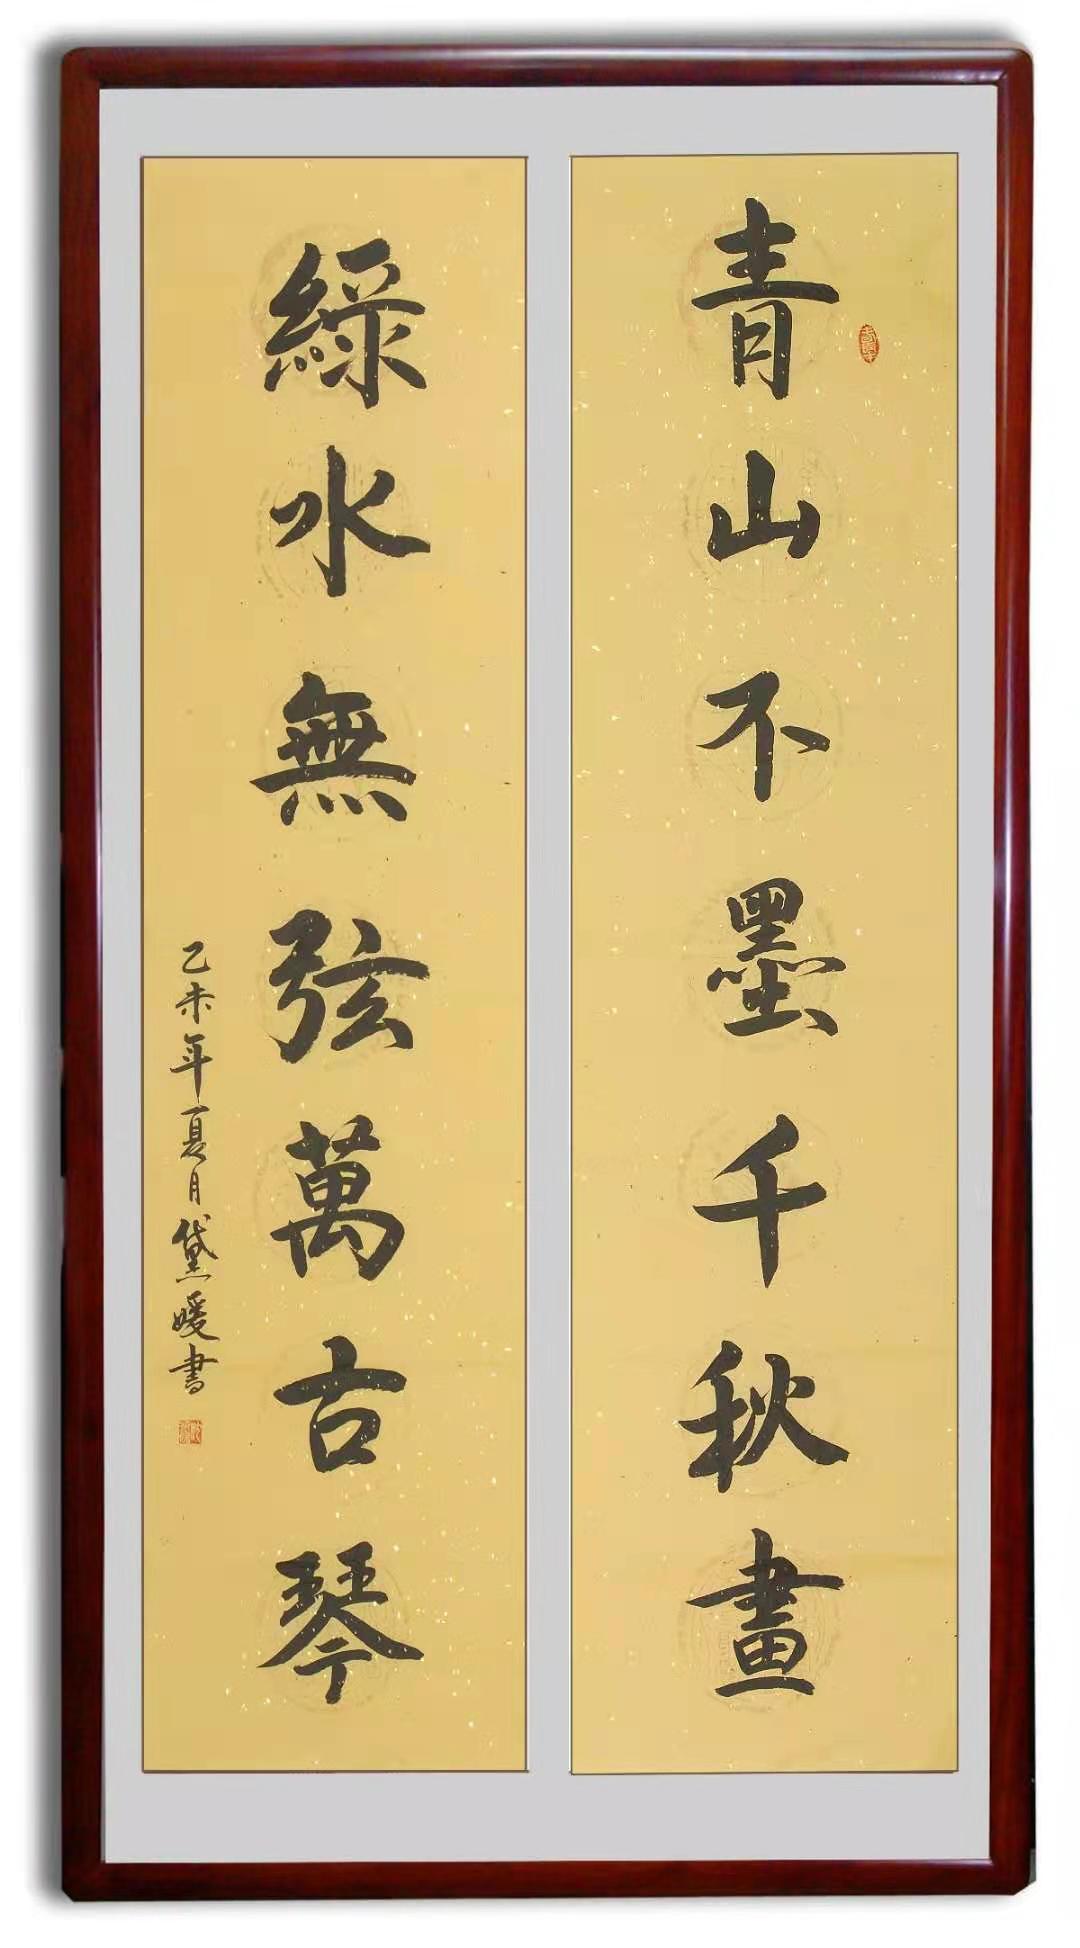 青山不墨千秋畫
綠水無弦萬古琴
乙未年夏月黛媛書